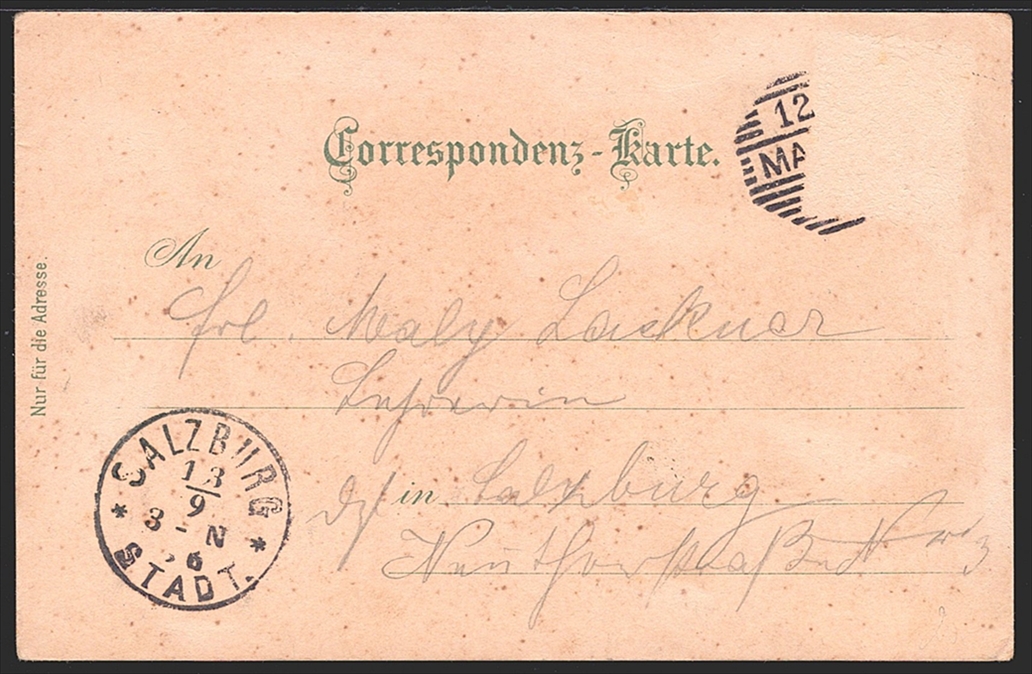 Correspondenz-Karte.
12
MA
An
Frl. Maly Lackner
Lehrerin
in Salzburg
Neuthorstraße Nr 3
Nur für die Adresse.
SALZBURG
13
9
3 - N
6
STADT.